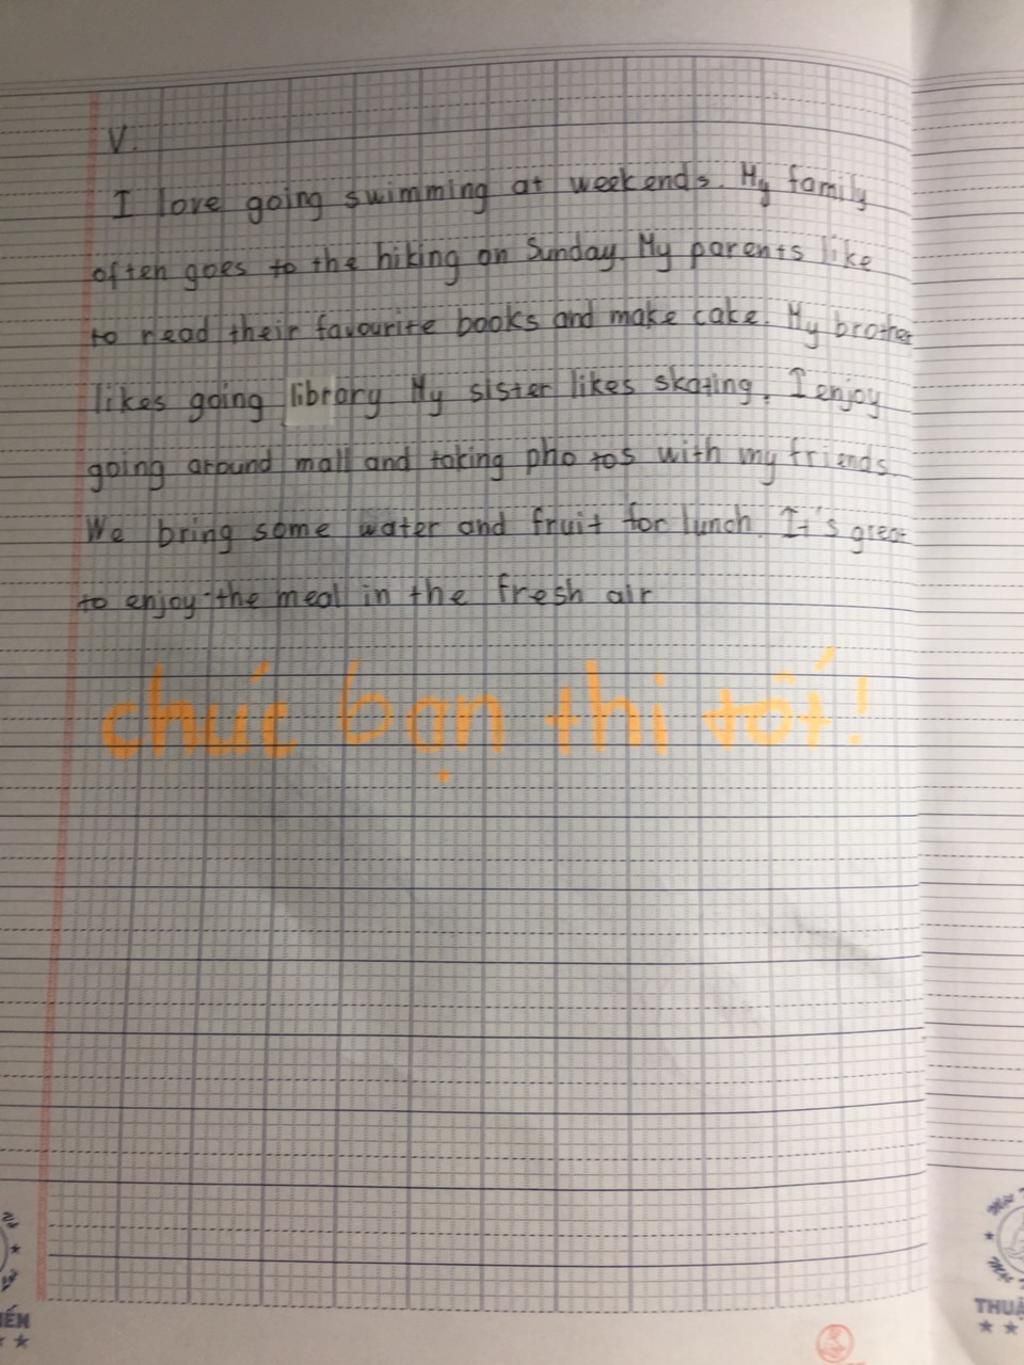 V.
I love going swimming at weekends. My family
often goes to the hiking on Sunday. My parents like
to read their favourite books and make cake. My brother
likes going library My sister likes skating. I enjoy
going around mall and taking photos with my friends.
We bring some water and fruit for lunch. It's great
to enjoy the meal in the fresh air
chúc bạn thi tốt!
THUẬ